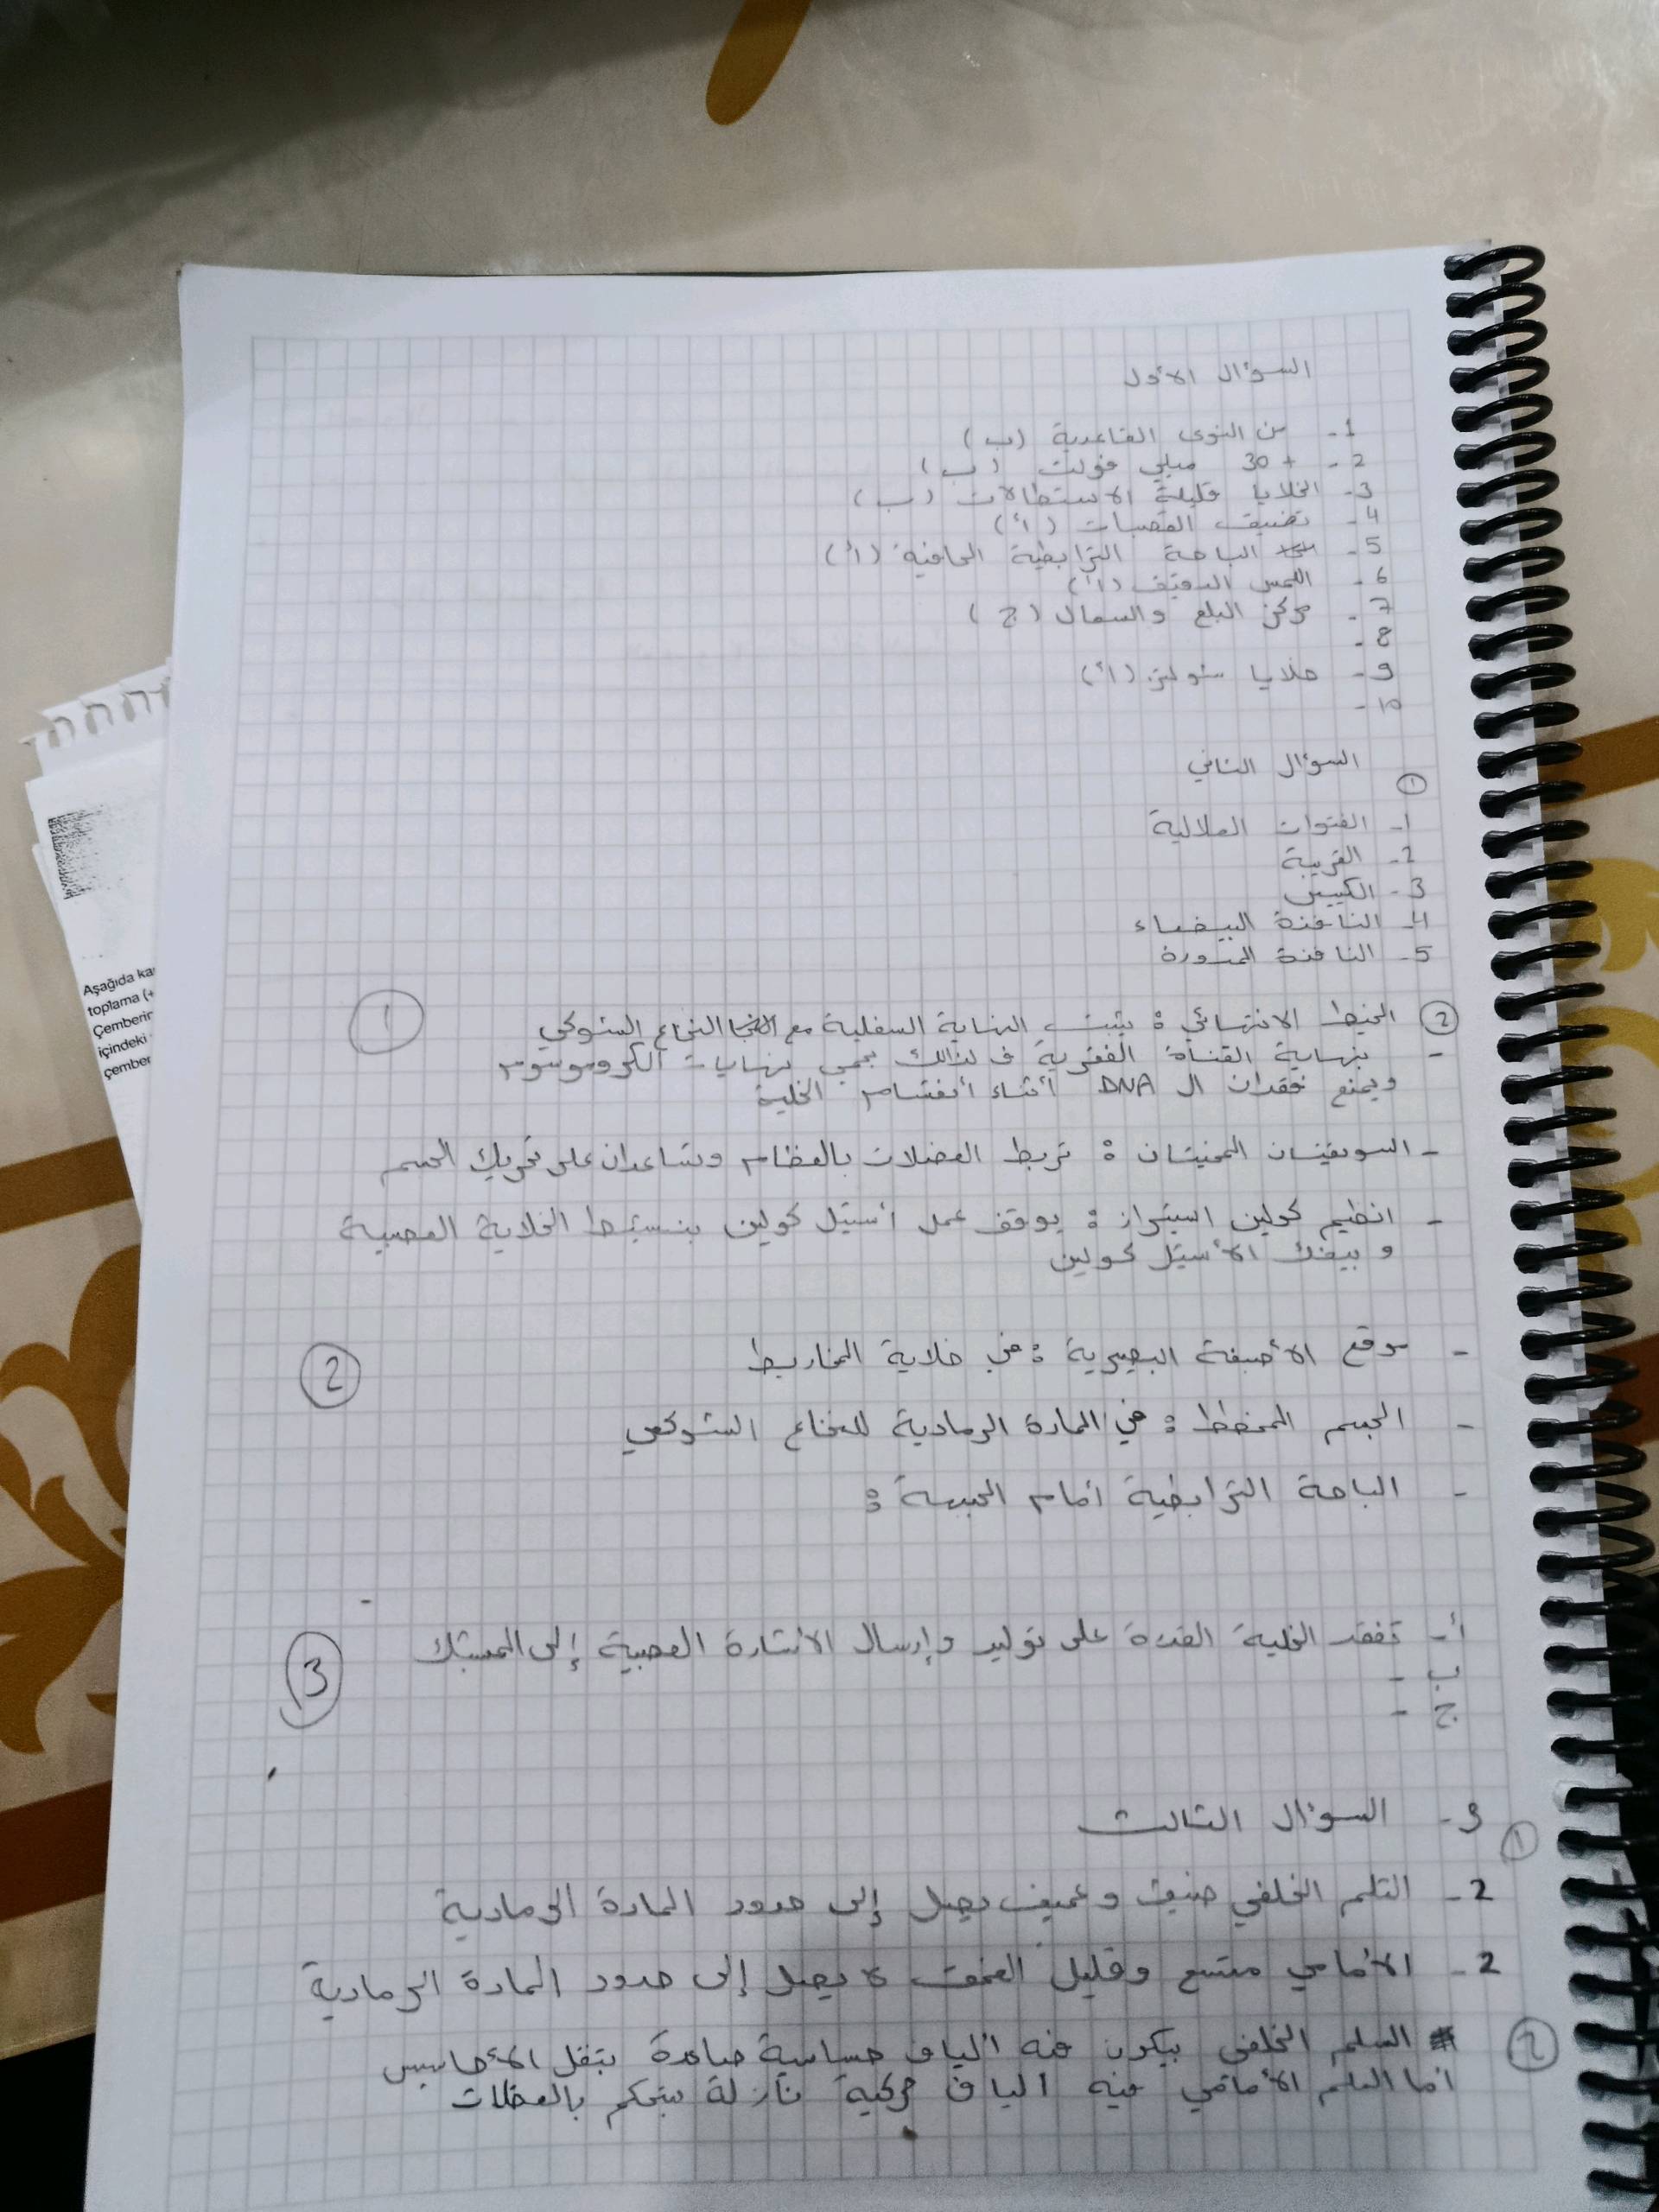 السؤال الأول
1- من النوى القاعدية (ب)
2- +30 ميلي فولت (ب)
3- الخلايا قليلة الاستطالات (ب)
4- تضييق القصبات (أ)
5- الباحة الترابطية الحافية (أ)
6- اللمس الدقيق (أ)
7- مركز البلع والسعال (ج)
8-
9- خلايا شولتز (أ)
10-
السؤال الثاني
①
1- القنوات الهلالية
2- القريبة
3- الكييس
4- النافذة البيضاء
5- النافذة المدورة
② الخيط الانتهائي: يثبت النهاية السفلية مع النخاع الشوكي ①
- بنهاية القناة الفقرية ف لذالك يحمي نهايات الكروموسوم
ويمنع فقدان ال DNA أثناء أنقسام الخلية
- السويقتان المخيتان: تربط العضلات بالعظام وتساعدان على تحريك الجسم
- انظيم كولين استيراز: يوقف عمل أستيل كولين بنشيط الخلاية العصبية
و بيفك الأستيل كولين
- موقع الأصبغة البصرية: في خلاية المخاريط ②
- الجسم المخطط: في المادة الرمادية للنخاع الشوكي
- الباحة الترابطية أمام الجبهة:
أ- تفقد الخلية القدرة على توليد وإرسال الاشارة العصبية إلى المشبك ③
ب -
ج -
3- السؤال الثالث
①
2- التلم الخلفي ضيق وعميق يصل إلى حدود المادة الرمادية
2- الأمامي متسع وقليل العمق لا يصل إلى حدود المادة الرمادية
② التلم الخلفي بيكون فيه ألياف حساسة صاعدة بتنقل الأحاسيس
أما التلم الأمامي فيه ألياف حركية نازلة بتتحكم بالعضلات
Aşağıda ka
toplama (+
Çemberin
içindeki
çember